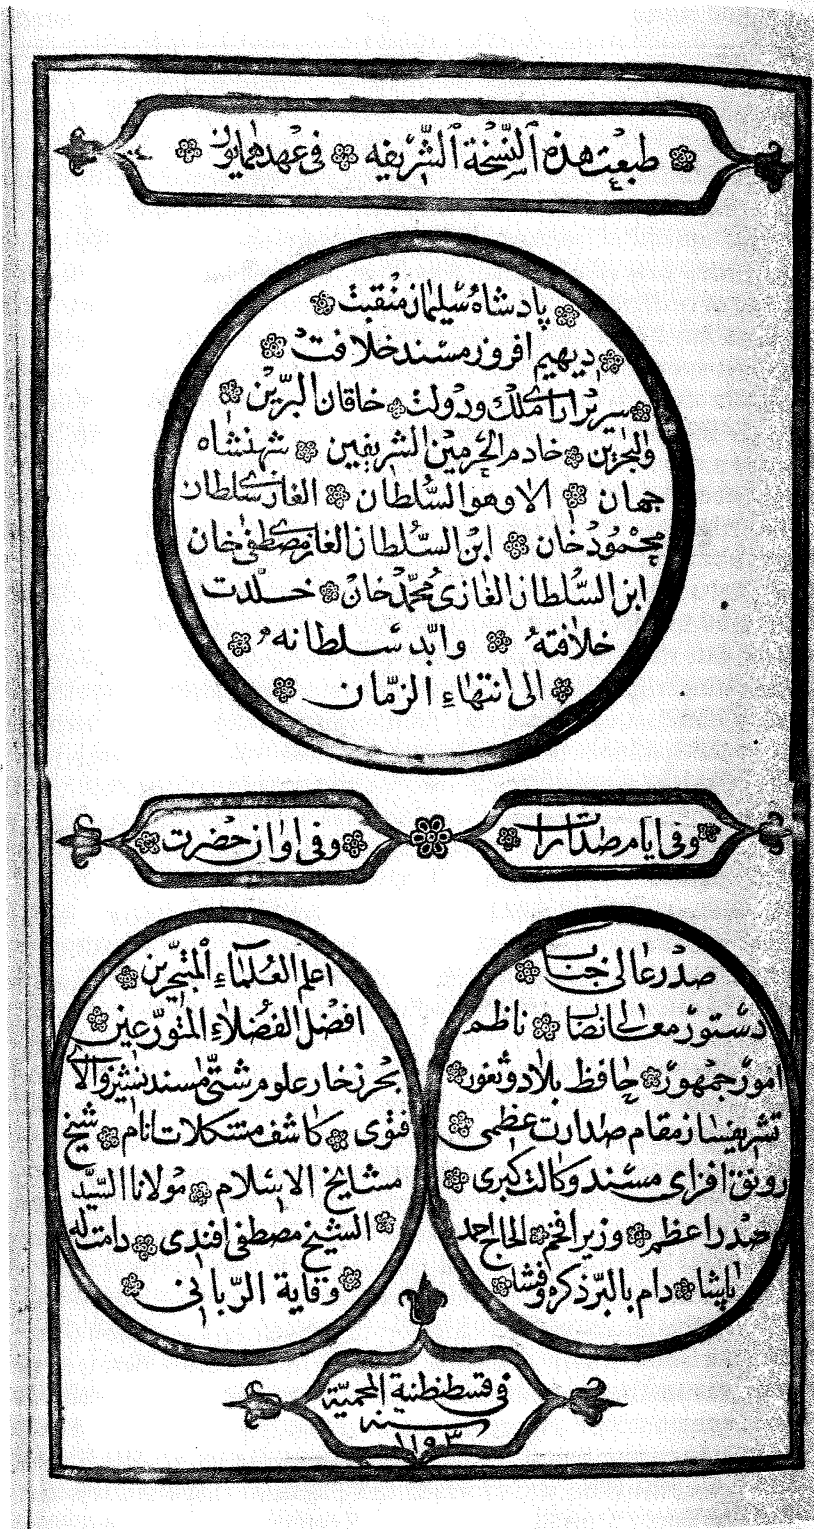 طبعت هذه النسخة الشريفه في عهد همايون
پادشاه سليمان منقبت
ديهيم افروز مسند خلافت
سرير اراى ملك و دولت خاقان البرّين
والبحرين خادم الحرمين الشريفين شهنشاه
جهان الا وهو السّلطان الغازى سلطان
محمود خان ابن السّلطان الغازى مصطفى خان
ابن السّلطان الغازى محمّد خان خلدت
خلافته وابّد سلطانه
الى انتهاء الزّمان
وفى ايام صدارات
صدر عالى جناب
دستور معالى نصاب ناظم
امور جمهور حافظ بلاد و ثغور
تشريفساز مقام صدارت عظمى
رونق افزاى مسند وكالت كبرى
صدر اعظم وزير افخم الحاج احمد
پاشا دام بالبرّ ذكره وفشا
وفى اوان حضرت
اعلم العلماء المتبحّرين
افضل الفضلاء المتورّعين
بحر زخار علوم شتّى مسند نشين والاى
فتوى كاشف مشكلات انام شيخ
مشايخ الاسلام مولانا السيّد
الشيخ مصطفى افندى دامت له
وقاية الرّبانى
فى قسطنطنية المحميّة
سنه
١١٥٣